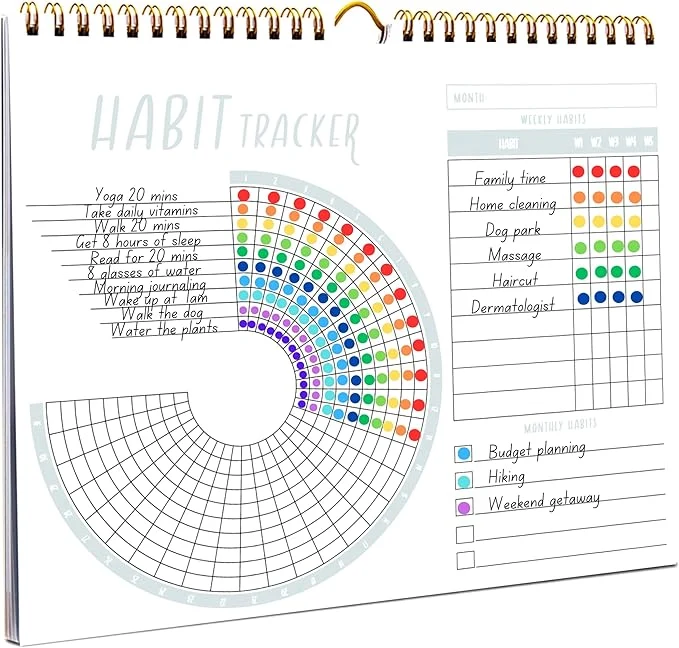 HABIT TRACKER
Yoga 20 mins
Take daily vitamins
Walk 20 mins
Get 8 hours of sleep
Read for 20 mins
8 glasses of water
Morning journaling
Wake up at
Walk the dog
Water the plants
1 2 3 4
MONTH:
WEEKLY HABITS
HABIT W1 W2 W3 W4 W5
Family time
Home cleaning
Dog park
Massage
Haircut
Dermatologist
MONTHLY HABITS
Budget planning
Hiking
Weekend getaway